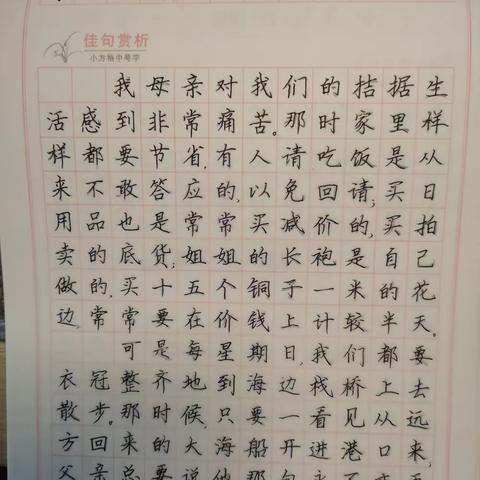 佳句赏析
小方格中号字
我母亲对我们的拮据生
活感到非常痛苦。那时家里样
样都要节省,有人请吃饭是从
来不敢答应的,以免回请;买日
用品也是常常买减价的,买拍
卖的底货;姐姐的长袍是自己
做的,买十五个铜子一米的花
边,常常要在价钱上计较半天。
可是每星期日,我们都要
衣冠整齐地到海边栈桥上去
散步。那时候,只要一看见从远
方回来的大海船开进港口来,
父亲总要说他那句永不